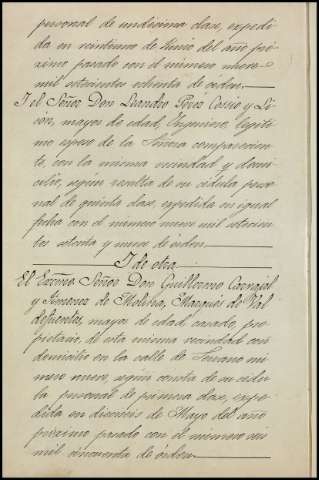 personal de undécima clase, expedi-
da en veintiuno de Junio del año pró-
ximo pasado con el número nueve
mil setecientos ochenta de órden.
Y el Señor Don Leandro Pérez Cossío y Li-
són, mayor de edad, Ingeniero, legíti-
mo esposo de la Señora comparecien-
te, con la misma vecindad y domi-
cilio, según resulta de su cédula perso-
nal de quinta clase, expedida en igual
fecha con el número nueve mil setecien-
tos setenta y nueve de órden.
Y de otra
El Excmo Señor Don Guillermo Carvajal
y Jimenez de Molina, Marqués de Val-
defuentes, mayor de edad, casado, pro-
pietario, de esta misma vecindad con
domicilio en la calle de Serrano nú-
mero nueve, según consta de su cédu-
la personal de primera clase, expe-
dida en dieciseis de Mayo del año
próximo pasado con el número seis
mil cincuenta de órden.